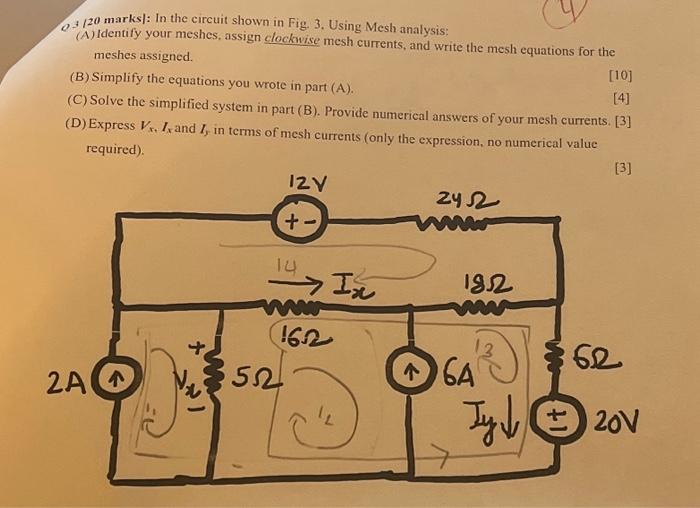 Q3 [20 marks]: In the circuit shown in Fig. 3, Using Mesh analysis:
(A) Identify your meshes, assign clockwise mesh currents, and write the mesh equations for the
meshes assigned. [10]
(B) Simplify the equations you wrote in part (A). [4]
(C) Solve the simplified system in part (B). Provide numerical answers of your mesh currents. [3]
(D) Express Vx, Ix and Iy in terms of mesh currents (only the expression, no numerical value
required). [3]
12V
24Ω
+ -
14
Ix
18Ω
16Ω
2A
+
Vx
-
5Ω
6A
13
6Ω
12
Iy
+
-
20V